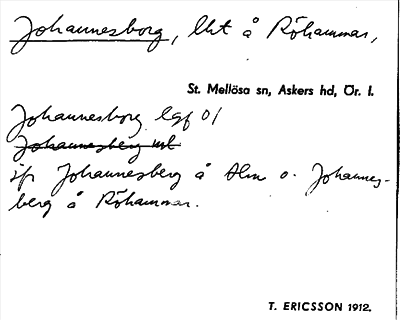 Johannesborg, lht å Röhammar,
St. Mellösa sn, Askers hd, Ör. l.
Johannesborg lgf 01
Johannesberg
jfr Johannesberg å Alm o. Johannes-
berg å Röhammar.
T. ERICSSON 1912.